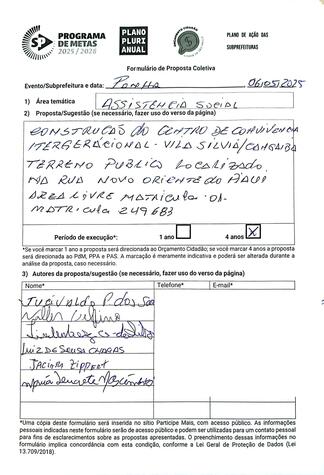 PROGRAMA
DE METAS
2025/2028
PLANO
PLURI
ANUAL
PLANO DE AÇÃO DAS
SUBPREFEITURAS
Formulário de Proposta Coletiva
Evento/Subprefeitura e data: Penha 06/05/2025
1) Área temática ASSISTENCIA SOCIAL
2) Proposta/Sugestão (se necessário, fazer uso do verso da página)
CONSTRUCÃO do CENTRO DE CONVIVENCIA
INTERGERACIONAL - VILA SILVIA/CANGAIBA
TERRENO PUBLICO LOCALIZADO
NA RUA NOVO ORIENTE do PIAUI
AREA LIVRE MATRICULA - 01 -
MATRICULA 249683
Período de execução*: 1 ano 4 anos X
*Se você marcar 1 ano a proposta será direcionada ao Orçamento Cidadão; se você marcar 4 anos a proposta
será direcionada ao PdM, PPA e PAS. A marcação é meramente indicativa e poderá ser alterada durante a
análise da proposta, caso necessário.
3) Autores da proposta/sugestão (se necessário, fazer uso do verso da página)
Nome* Telefone* E-mail*
P. dos
LUIZ DE SOUSA CHAGAS
JACIARA ZIPPERT
Maria Nascimento
*Uma cópia deste formulário será inserida no sítio Participe Mais, com acesso público. As informações
pessoais indicadas neste formulário serão de acesso público e podem ser utilizadas para um contato pessoal
para fins de esclarecimentos sobre as propostas apresentadas. O preenchimento dessas informações no
formulário implica concordância com esta condição, conforme a Lei Geral de Proteção de Dados (Lei
13.709/2018).